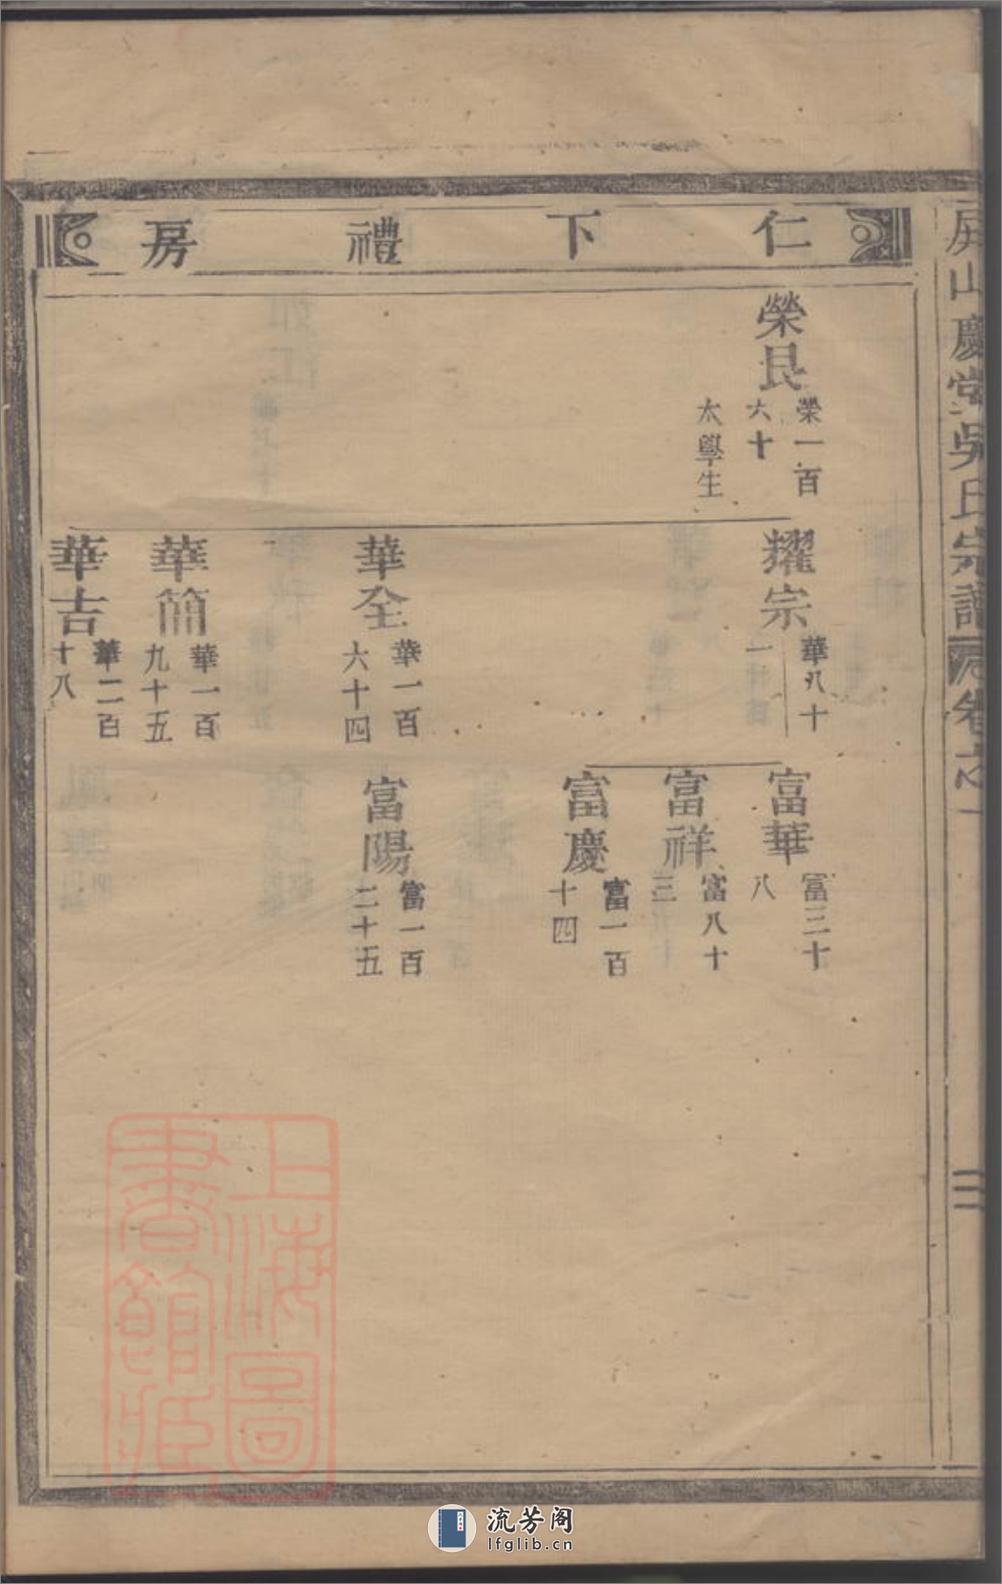 屏山慶堂吳氏宗譜
卷之一
二
仁下禮房
榮良
榮一百
六十
太學生
耀宗
華八十
一
華全
華一百
六十四
華簡
華一百
九十五
華吉
華二百
十八
富華
富三十
八
富祥
富八十
三
富慶
富一百
十四
富陽
富一百
二十五
上海圖
書館藏
流芳阁
lfglib.cn